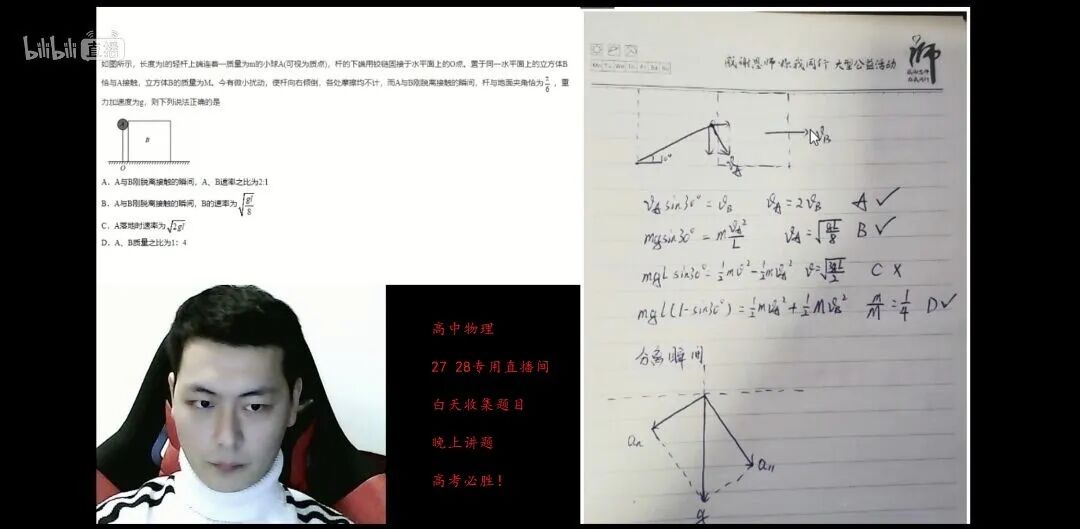 bilibili 直播
如图所示，长度为l的轻杆上端连着一质量为m的小球A(可视为质点)，杆的下端用铰链固接于水平面上的O点。置于同一水平面上的立方体B
恰与A接触，立方体B的质量为M。今有微小扰动，使杆向右倾倒，各处摩擦均不计，而A与B刚脱离接触的瞬间，杆与地面夹角恰为π/6，重
力加速度为g，则下列说法正确的是
A
B
O
A．A与B刚脱离接触的瞬间，A、B速率之比为2:1
B．A与B刚脱离接触的瞬间，B的速率为√(gl/8)
C．A落地时速率为√(2gl)
D．A、B质量之比为1：4
高中物理
27 28专用直播间
白天收集题目
晚上讲题
高考必胜！
感谢恩师·你我同行 大型公益活动
师
Mo Tu We Th Fr Sa Su
30°
v_B
v_A
v_A sin30°=v_B v_A=2v_B A ✓
mg sin30°=m v_A²/L v_A=√(gL/8) B ✓
mgL sin30°=½mv²-½mv_A² C ×
mgl(1-sin30°)=½mv_A²+½Mv_B² m/M=1/4 D ✓
分离瞬间
an
a11
g